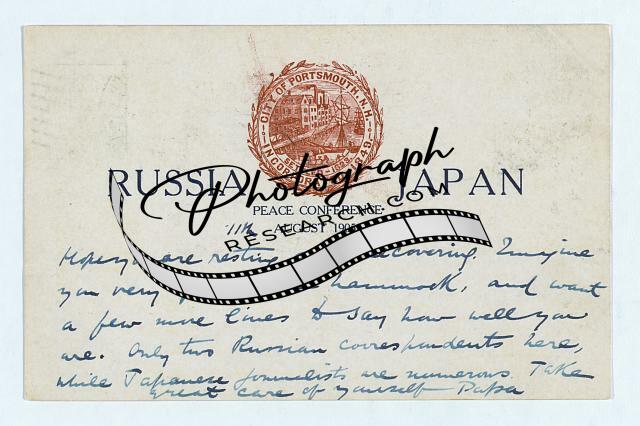 CITY OF PORTSMOUTH, N.H.
INCORPORATED 1849.
RUSSIA JAPAN
PEACE CONFERENCE
11th AUGUST 190
Photograph
RESEARCH.COM
Hope you are resting recovering. Imagine
you very hammock, and want
a few more lines to say how well you
are. Only two Russian correspondents here,
while Japanese journalists are numerous. Take
great care of yourself Papa